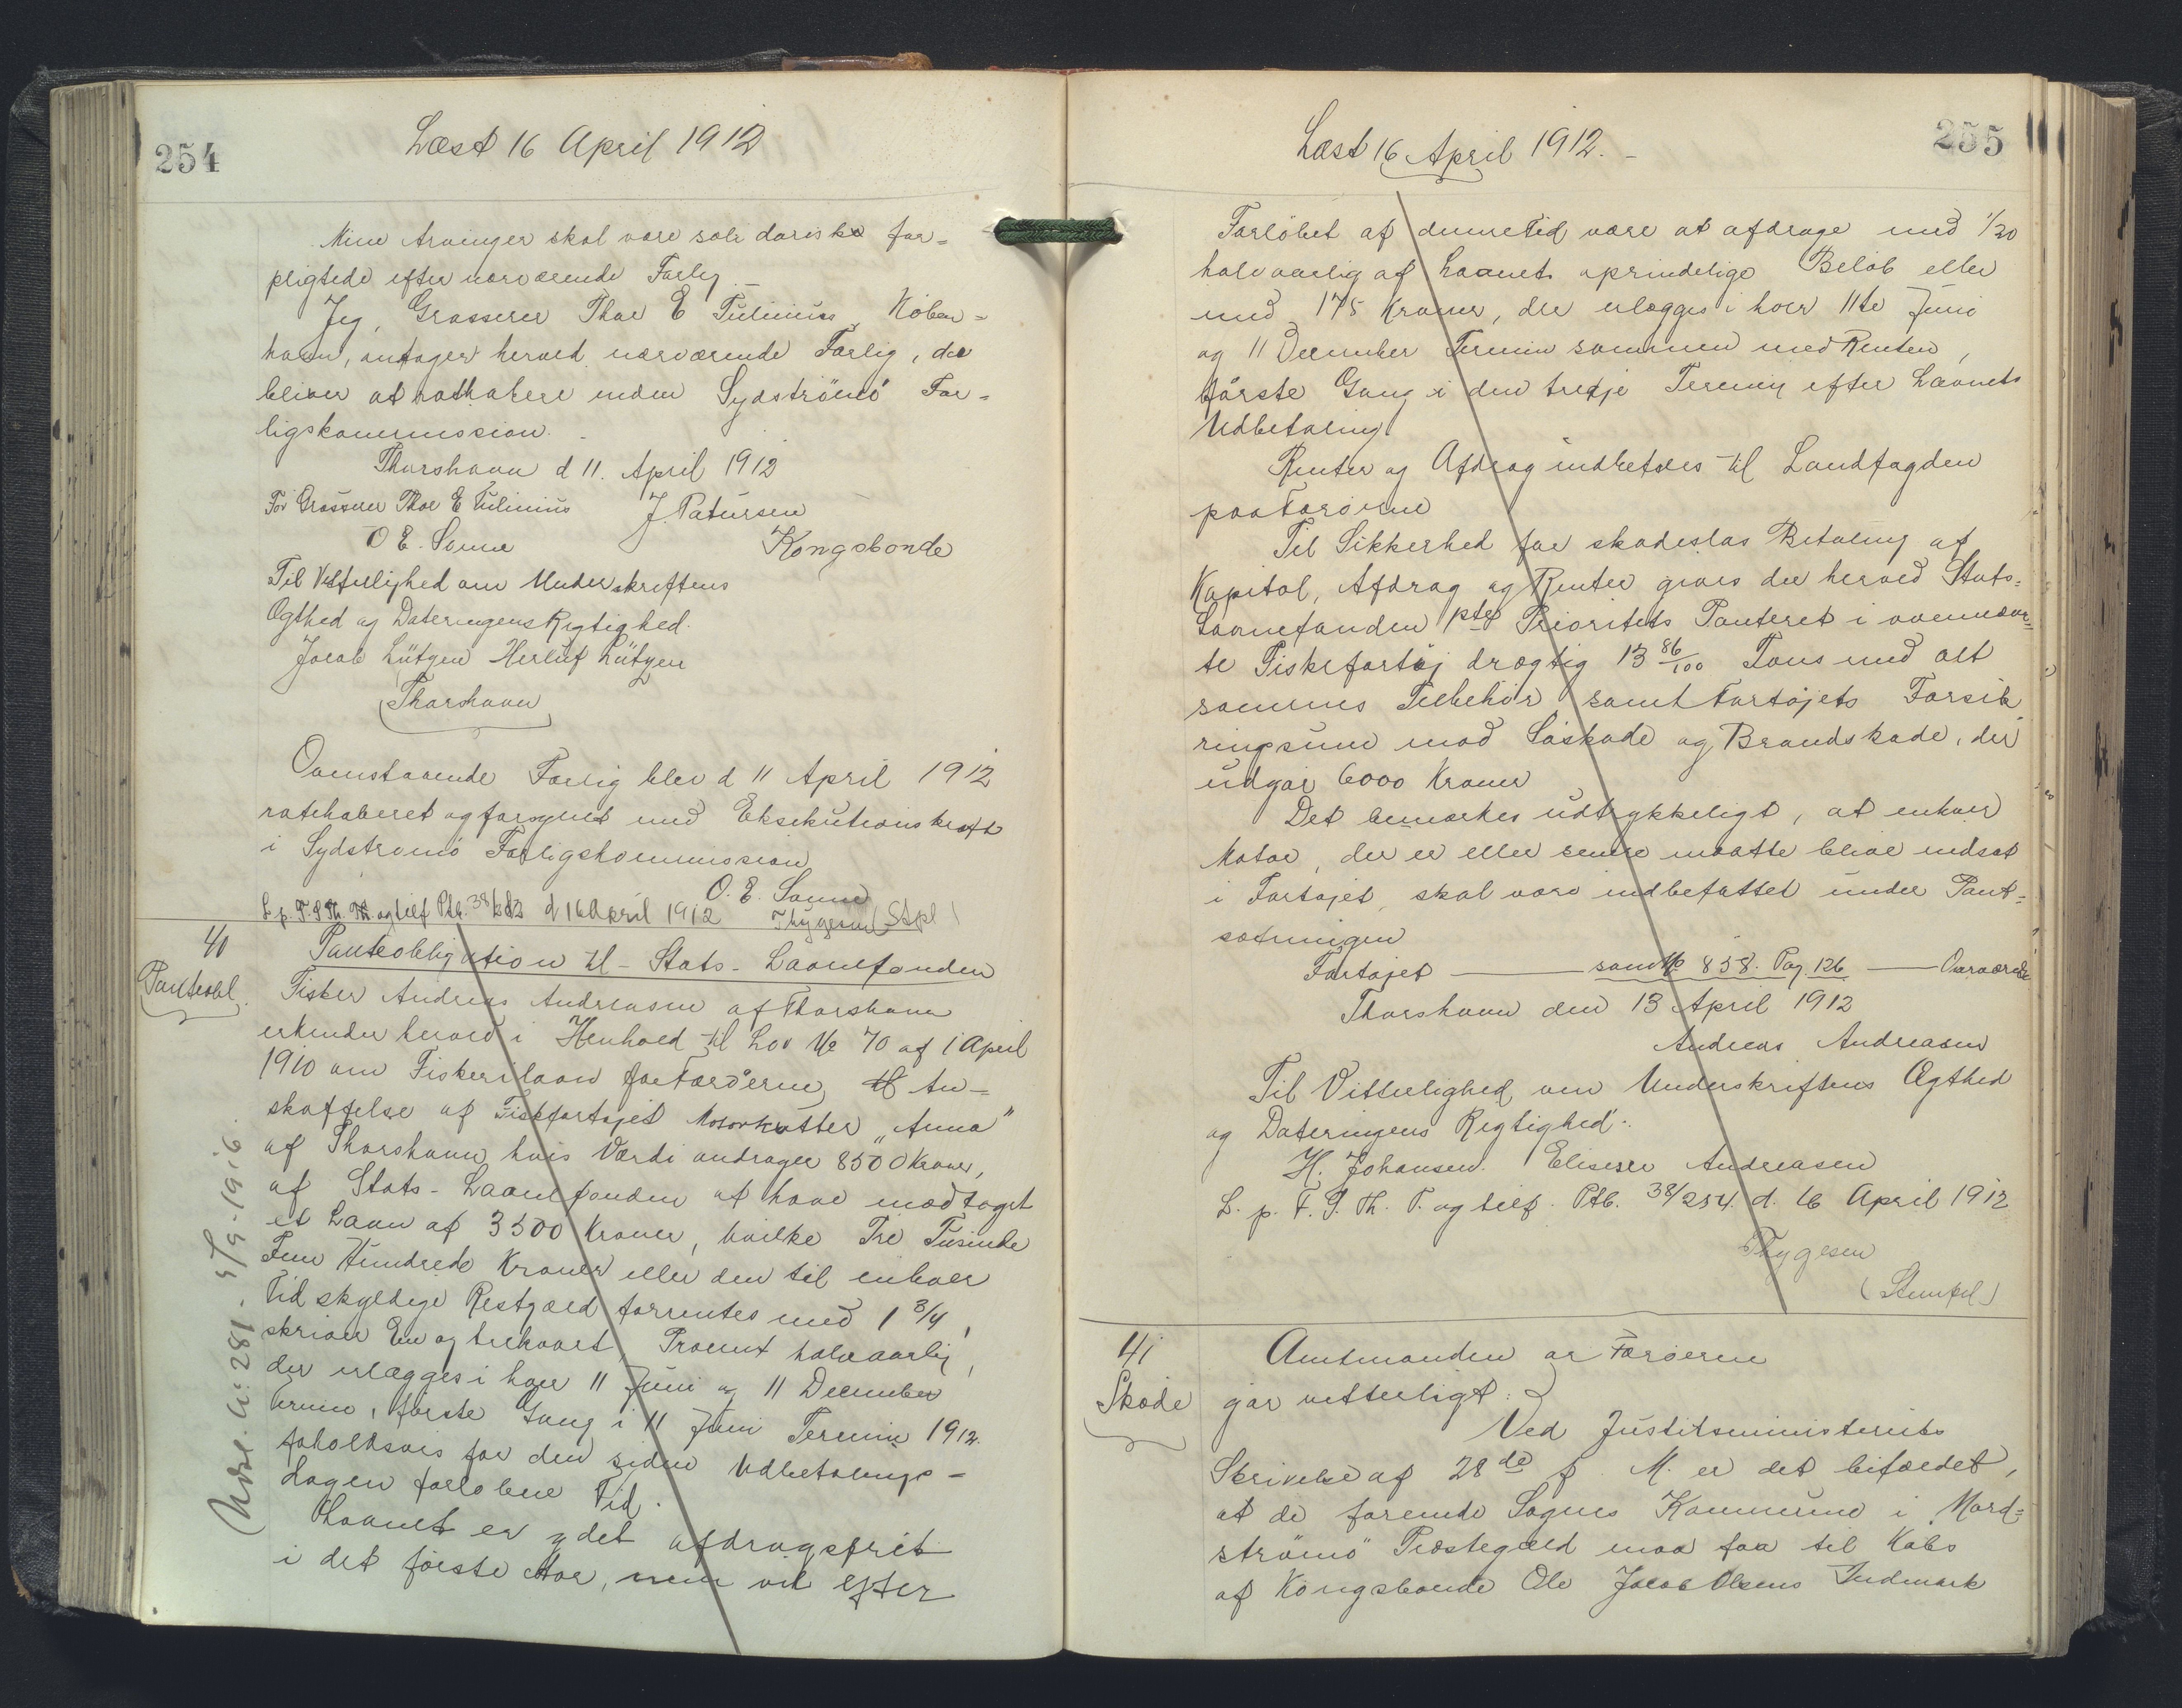 254
Læst 16 April 1912
Mine Arvinger skal være solidariske for=
pligtede efter nærværende Forlig.
Jeg, Grosserer Thor E Tulinius, Køben=
havn, antager herved nærværende Forlig, der
bliver at rathabere inden Sydströmö For=
ligskommission.
Thorshavn d 11. April 1912
For Grosserer Thor E Tulinius J. Patursson
O E. Sonne Kongsbonde
Til Vitterlighed om Underskriftens
Ægthed og Dateringens Rigtighed.
Jacob Lützen Herluf Lützen
Thorshavn
Ovenstaaende Forlig blev d 11 April 1912
ratihaberet og forsynet med Eksekutionskraft
i Sydstromö Forligskommission
O. E. Sonne
L. p. F. S Th. Th. og tilf Ptb. 38/252 d 16 April 1912 Thygesen (Stpl)
40
Panteobl.
Panteobligation til Stats-Laanefonden
Fisker Andreas Andreasen af Thorshavn
erkender herved i Henhold til Lov No 70 af 1 April
1910 om Fiskerilaan for Færöerne, til An=
skaffelse af Fiskefartøjet Motorkutter „Anna"
af Thorshavn hvis Værdi andrager 8500 Kroner,
af Stats-Laanefonden at have modtaget
et Laan af 3500 Kroner, hvilke Tre Tusinde
Fem Hundrede Kroner eller den til enhver
Tid skyldige Restgæld forrentes med 1 3/4,
skriver En og trekvart, Procent halvaarlig,
der erlægges i hver 11 Juni og 11 December
Termin, første Gang i 11 Juni Termin 1912.
foholdsvis for den siden Udbetalings=
dagen forløbne Tid.
Laanet er ydet afdragsfrit
i det første Aar, men vil efter
Udsl. A: 281 - 5/9-1916.
255
Læst 16 April 1912. -
Forløbet af denne Tid være at afdrage med 1/20
halvaarlig af Laanets oprindelige Beløb eller
med 175 Kroner, der erlægges i hver 11te Juni
og 11 December Termin sammen med Renten,
første Gang i den tredje Termin efter Laanets
Udbetaling.
Renter og Afdrag indbetales til Landfogden
paa Færøerne
Til Sikkerhed for skadesløs Betaling af
Kapital, Afdrag og Renter gives der herved Stats=
Laanefonden 1ste Prioritets Panteret i ovennævn=
te Fiskefartøj drægtig 13 86/100 Tons med alt
sammes Tilbehör samt Fartøjets Forsik
ringssum mod Söskade og Brandskade, der
udgör 6000 Kroner
Det bemærkes udtrykkeligt, at enhver
Motor, der er eller senere maatte blive indsat
i Fartøjet, skal være indbefattet under Pant=
sætningen
Fartøjet ——— som No 858. Pag. 126 —— Overværende
Thorshavn den 13 April 1912
Andreas Andreasen
Til Vitterlighed om Underskriftens Ægthed
og Dateringens Rigtighed:.
H. Johansen. Elieser Andreasen
L. p. F. S. Th. T. og tilf. Ptb. 38/254. d. 16 April 1912
Thygesen
(Stempel)
41
Skøde
Amtmanden over Færöerne
gør vitterligt:
Ved Justitsministeriets
Skrivelse af 28de f. M. er det bifaldet,
at de forende Sognes Kommune i Nord=
strömö Præstegæld maa faa til Købs
af Kongsbonde Ole Jacob Olsens Indmark